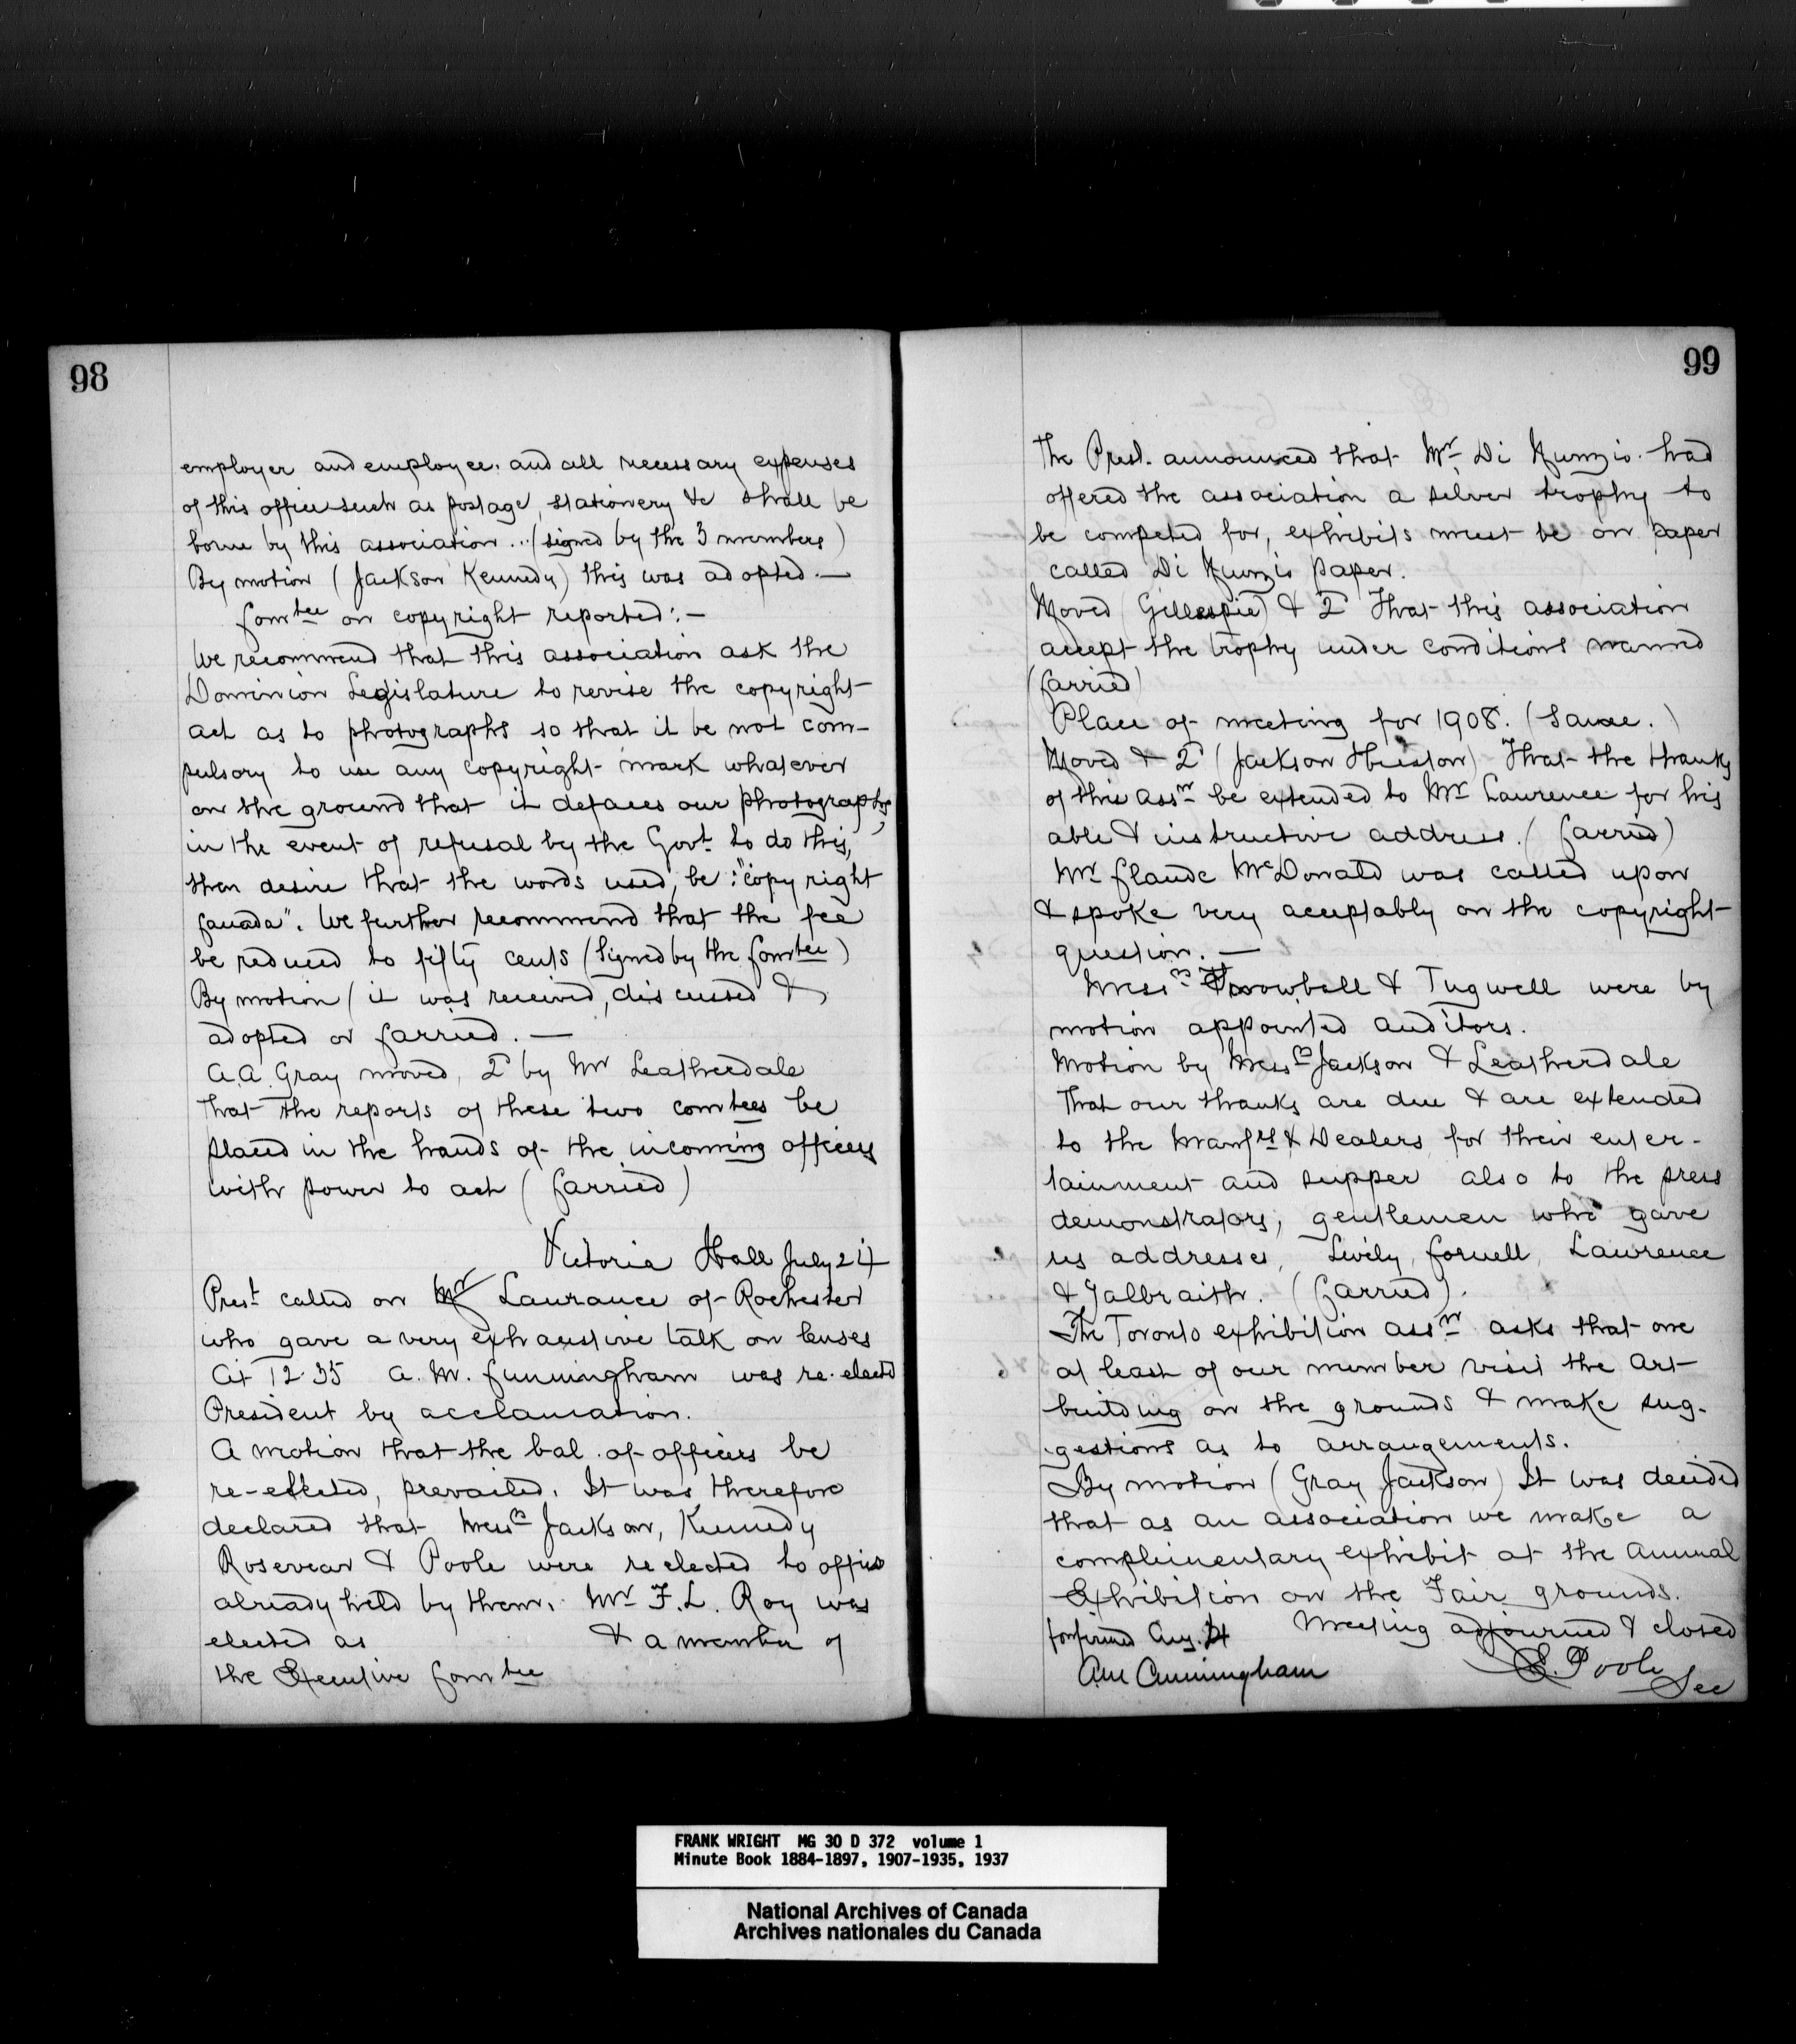 98
employer and employee. and all necessary expenses
of this office such as postage, stationery &c shall be
borne by this association... (signed by the 3 members)
By motion (Jackson Kennedy) this was adopted.—
Comtee on copyright reported:—
We recommend that this association ask the
Dominion Legislature to revise the copyright
act as to photographs so that it be not com-
pulsory to use any copyright mark whatever
on the ground that it defaces our photographs,
in the event of refusal by the Govt. to do this,
then desire that the words used, be: "copyright
Canada". We further recommend that the fee
be reduced to fifty cents (Signed by the Comtee)
By motion (it was received, discussed &
adopted or Carried.—
A.A. Gray moved, 2d by Mr Leatherdale
That the reports of these two comtees be
placed in the hands of the incoming officers
with power to act (Carried)
Victoria Hall July 24
Prest called on Mr Laurance of Rochester
who gave a very exhaustive talk on lenses
At 12.35 A. M. Cunningham was re-elected
President by acclamation.
A motion that the bal. of officers be
re-elected, prevailed. It was therefore
declared that Messrs Jackson, Kennedy
Rosevear & Poole were reelected to office
already held by them. Mr F. L. Roy was
elected as & a member of
the Executive Comtee
99
The Prest. announced that Mr Di Nunzio had
offered the association a silver trophy to
be competed for, exhibits must be on paper
called Di Nunzio paper.
Moved (Gillespie) & 2d That this association
accept the trophy under conditions named
(Carried)
Place of meeting for 1908. (Same.)
Moved & 2d (Jackson Hueston) That the thanks
of this assn be extended to Mr Lawrence for his
able & instructive address. (Carried)
Mr Claude McDonald was called upon
& spoke very acceptably on the copyright
question.—
Messrs Snowball & Tugwell were by
motion appointed auditors.
Motion by Messrs Jackson & Leatherdale
That our thanks are due & are extended
to the Manfrs & Dealers for their enter-
tainment and supper also to the press
demonstrators, gentlemen who gave
us addresses, Lively, Cornell, Lawrence
& Galbraith. (Carried).
The Toronto exhibition assn asks that one
at least of our number visit the art
building on the grounds & make sug-
gestions as to arrangements.
By motion (Gray Jackson) It was decided
that as an association we make a
complimentary exhibit at the Annual
Exhibition on the Fair grounds.
Confirmed Aug. Meeting adjourned & closed
A M Cunningham E. Poole
Sec
FRANK WRIGHT MG 30 D 372 volume 1
Minute Book 1884-1897, 1907-1935, 1937
National Archives of Canada
Archives nationales du Canada